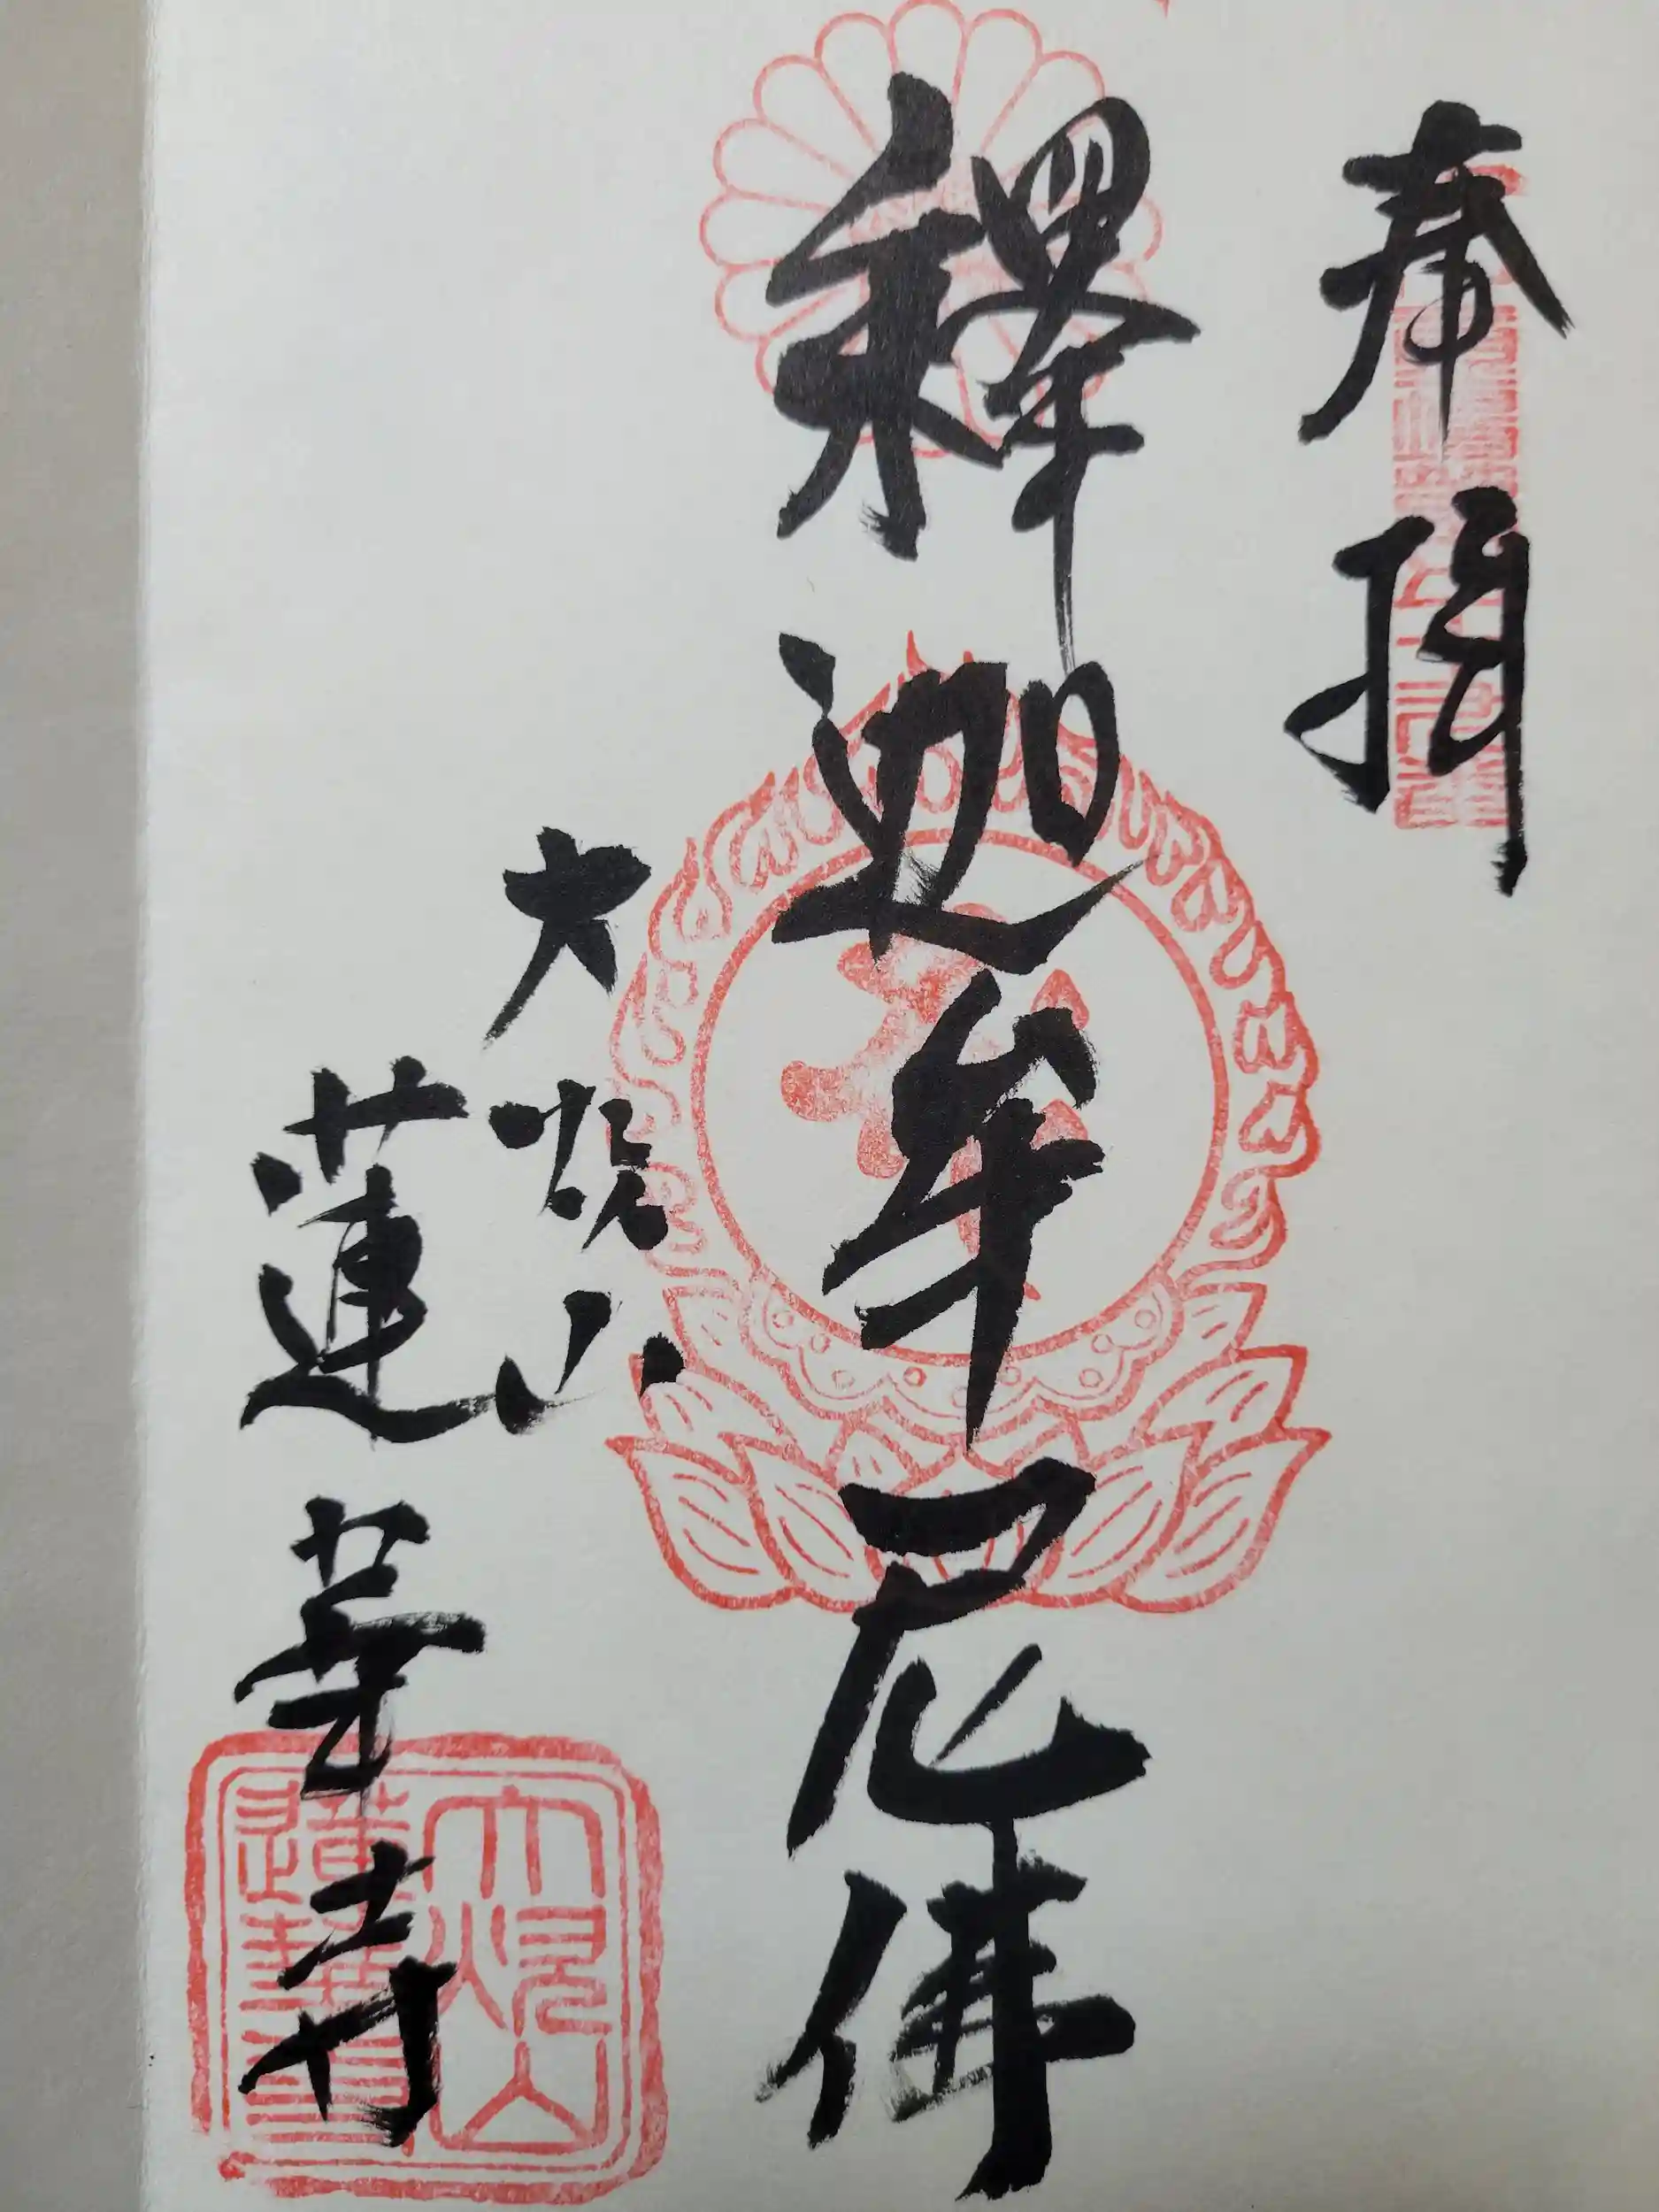 奉拝
釋迦牟尼佛
大焜山
蓮華寺